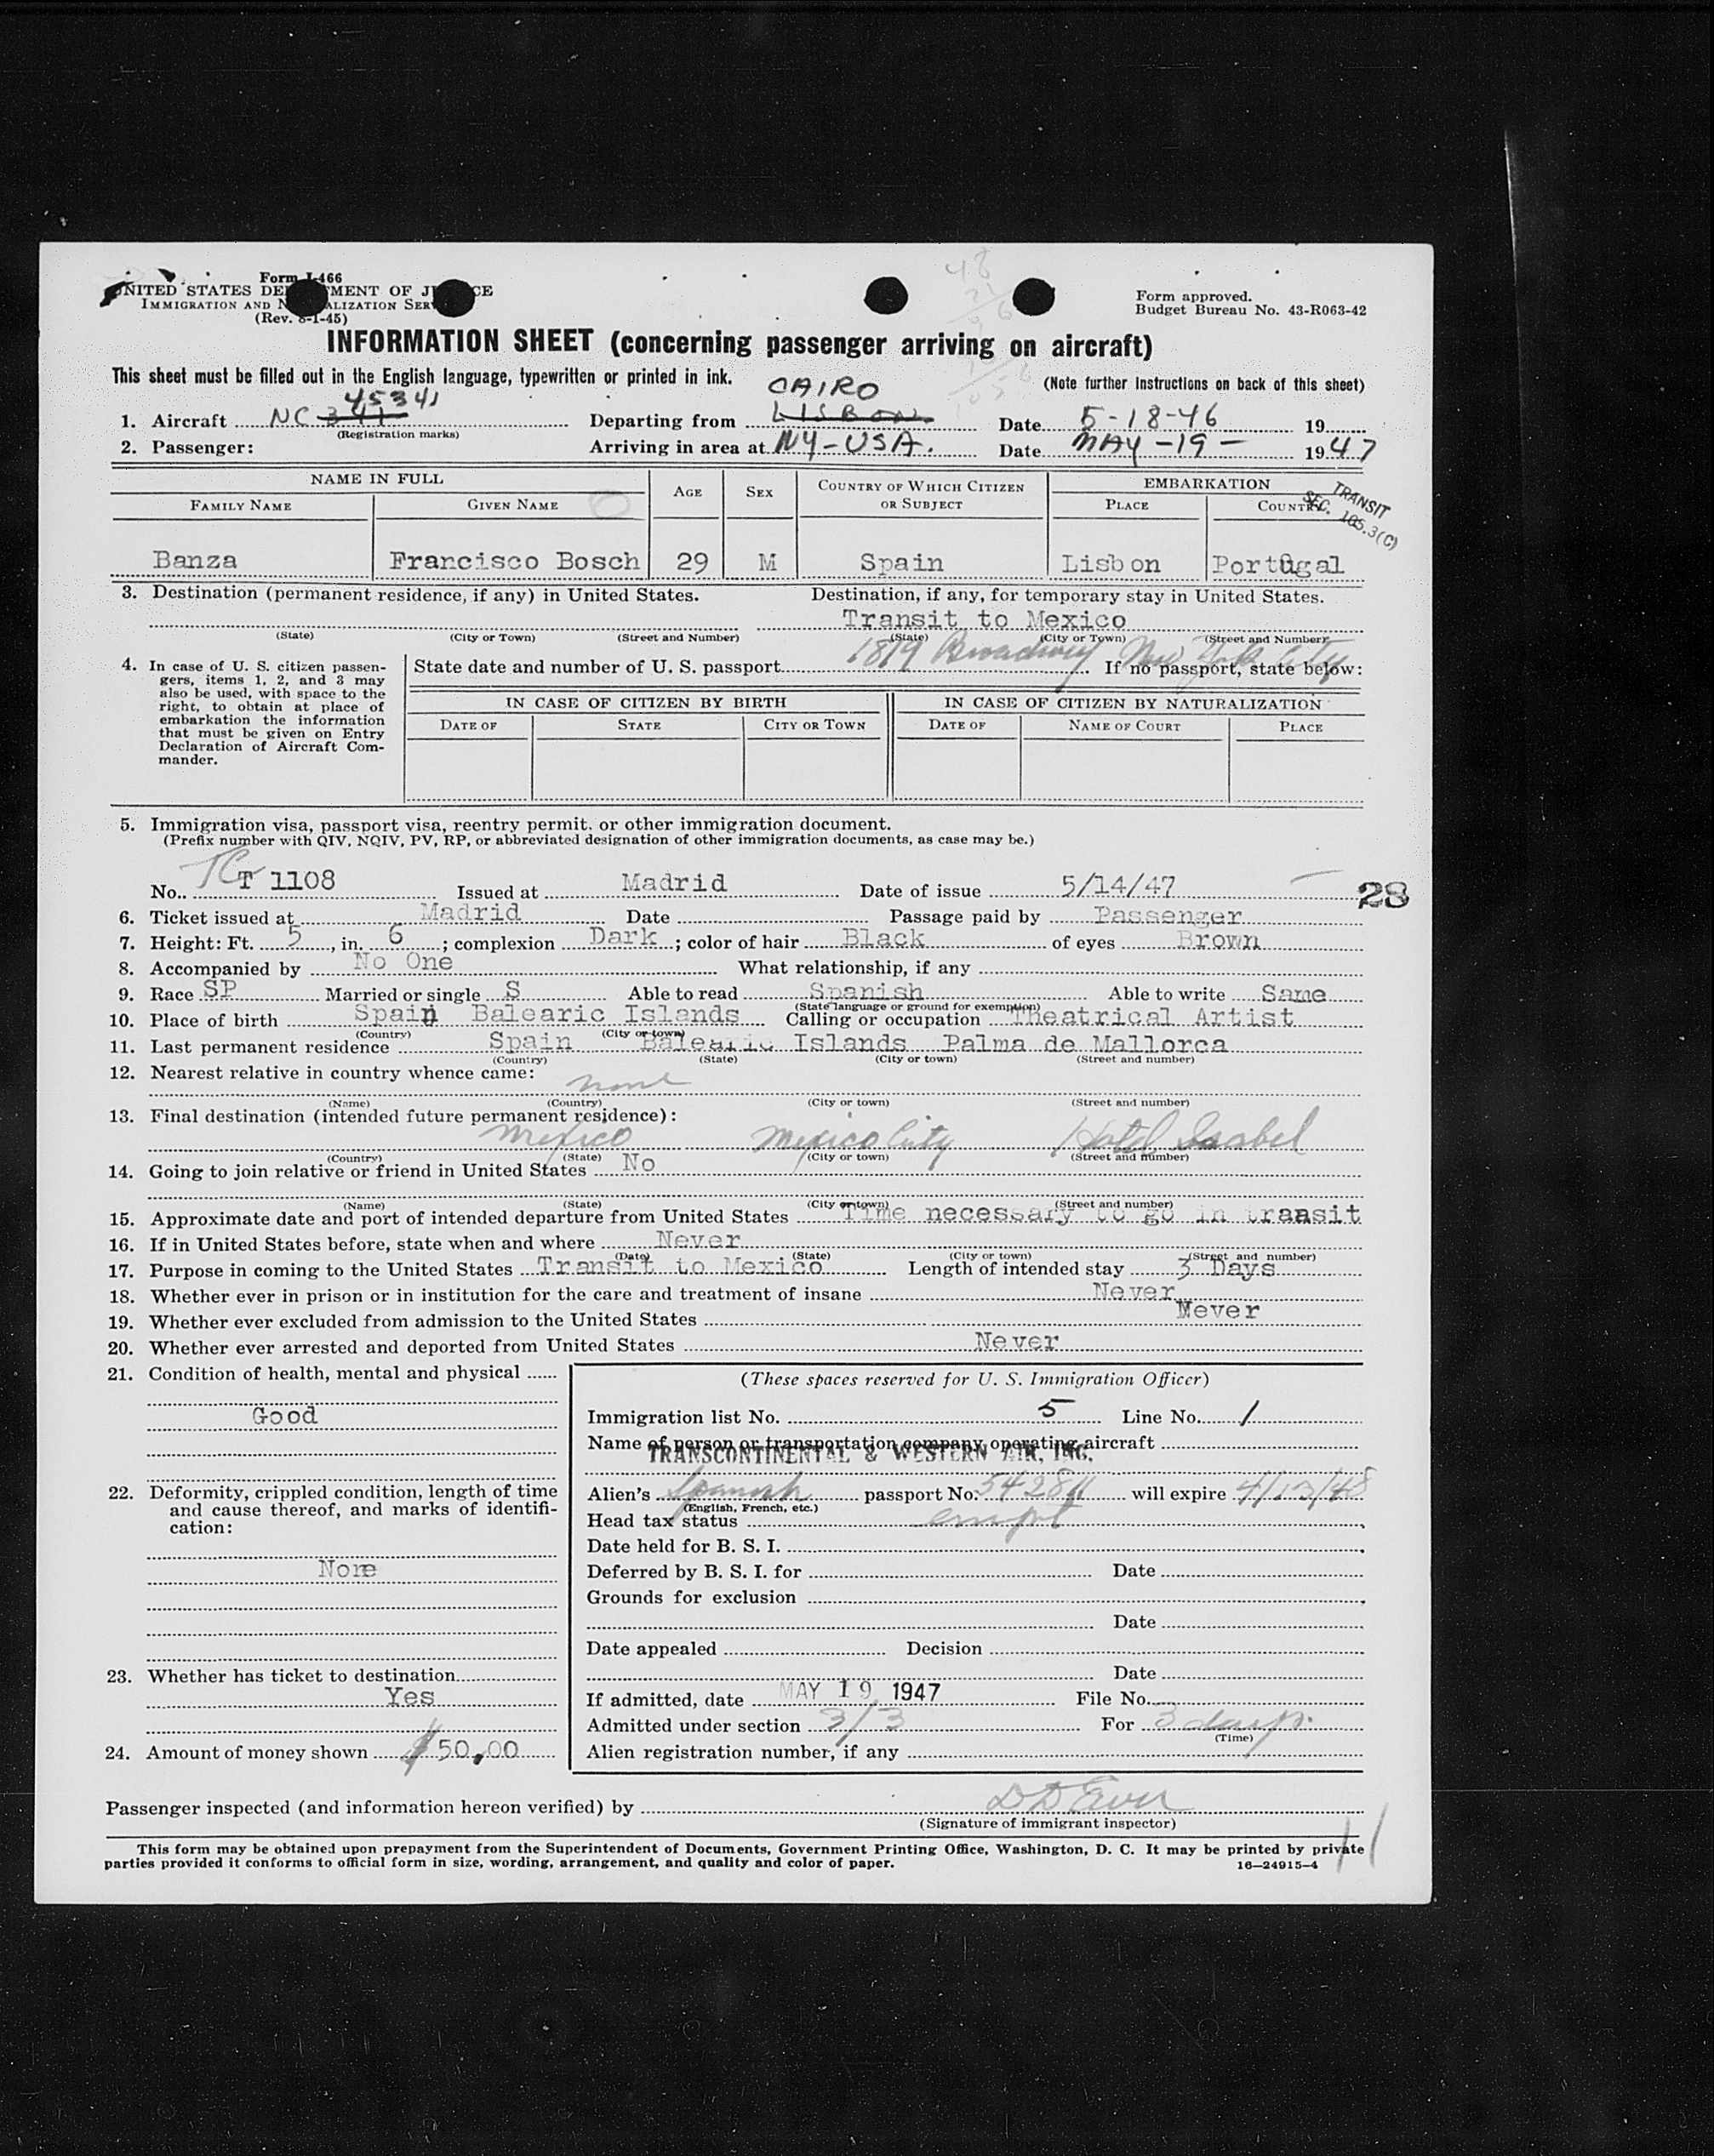 Form I-466
UNITED STATES DEPARTMENT OF JUSTICE
IMMIGRATION AND NATURALIZATION SERVICE
(Rev. 8-1-45)
Form approved.
Budget Bureau No. 43-R063-42
INFORMATION SHEET (concerning passenger arriving on aircraft)
This sheet must be filled out in the English language, typewritten or printed in ink.
(Note further instructions on back of this sheet)
45341 CAIRO
1. Aircraft NC 341 Departing from LISBON Date 5-18-46 19
(Registration marks)
2. Passenger: Arriving in area at NY-USA. Date MAY-19- 1947
NAME IN FULL AGE SEX COUNTRY OF WHICH CITIZEN OR SUBJECT EMBARKATION
FAMILY NAME GIVEN NAME PLACE COUNTRY
TRANSIT
SEC. 105.3(C)
Banza Francisco Bosch 29 M Spain Lisbon Portugal
3. Destination (permanent residence, if any) in United States. Destination, if any, for temporary stay in United States.
Transit to Mexico
(State) (City or Town) (Street and Number) (State) (City or Town) (Street and Number)
1819 Broadway New York City
4. In case of U. S. citizen passengers, items 1, 2, and 3 may also be used, with space to the right, to obtain at place of embarkation the information that must be given on Entry Declaration of Aircraft Commander.
State date and number of U. S. passport If no passport, state below:
IN CASE OF CITIZEN BY BIRTH IN CASE OF CITIZEN BY NATURALIZATION
DATE OF STATE CITY OR TOWN DATE OF NAME OF COURT PLACE
5. Immigration visa, passport visa, reentry permit. or other immigration document.
(Prefix number with QIV, NQIV, PV, RP, or abbreviated designation of other immigration documents, as case may be.)
No. TC T 1108 Issued at Madrid Date of issue 5/14/47
28
6. Ticket issued at Madrid Date Passage paid by Passenger
7. Height: Ft. 5, in. 6; complexion Dark; color of hair Black of eyes Brown
8. Accompanied by No One What relationship, if any
9. Race SP Married or single S Able to read Spanish Able to write Same
(State language or ground for exemption)
10. Place of birth Spain Balearic Islands Calling or occupation Theatrical Artist
(Country) (City or town)
11. Last permanent residence Spain Balearic Islands Palma de Mallorca
(Country) (State) (City or town) (Street and number)
12. Nearest relative in country whence came: none
(Name) (Country) (City or town) (Street and number)
13. Final destination (intended future permanent residence):
Mexico Mexico City Hotel Isabel
(Country) (State) (City or town) (Street and number)
14. Going to join relative or friend in United States No
(Name) (State) (City or town) (Street and number)
15. Approximate date and port of intended departure from United States Time necessary to go in transit
16. If in United States before, state when and where Never
(Date) (State) (City or town) (Street and number)
17. Purpose in coming to the United States Transit to Mexico Length of intended stay 3 Days
18. Whether ever in prison or in institution for the care and treatment of insane Never
19. Whether ever excluded from admission to the United States Never
20. Whether ever arrested and deported from United States Never
21. Condition of health, mental and physical
Good
22. Deformity, crippled condition, length of time and cause thereof, and marks of identification:
None
23. Whether has ticket to destination
Yes
24. Amount of money shown $50.00
(These spaces reserved for U. S. Immigration Officer)
Immigration list No. 5 Line No. 1
Name of person or transportation company operating aircraft
TRANSCONTINENTAL & WESTERN AIR, INC.
Alien's Spanish passport No. will expire 4/13/48
(English, French, etc.)
Head tax status
Date held for B. S. I.
Deferred by B. S. I. for Date
Grounds for exclusion
Date
Date appealed Decision
Date
If admitted, date MAY 19 1947 File No.
Admitted under section 3/3 For 3 days.
(Time)
Alien registration number, if any
Passenger inspected (and information hereon verified) by
(Signature of immigrant inspector)
This form may be obtained upon prepayment from the Superintendent of Documents, Government Printing Office, Washington, D. C. It may be printed by private
parties provided it conforms to official form in size, wording, arrangement, and quality and color of paper. 16—24915-4